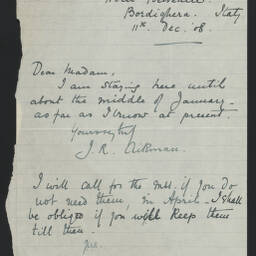 Bordighera. Italy
11th Dec. '08.
Dear Madam,
I am staying here until
about the middle of January -
as far as I know at present.
Yours truly
J. R.
I will call for the MSS. if you do
not need them, in April - I shall
be obliged if you will keep them
till then.